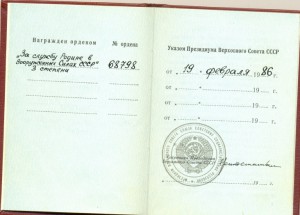 Награжден орденом
№ ордена
„За службу Родине в
Вооруженных Силах СССР"
3 степени
68798
Указом Президиума Верховного Совета СССР
от „ 19 " февраля 1986 г.
от „ " 19 г.
от „ " 19 г.
от „ " 19 г.
от „ " 19 г.